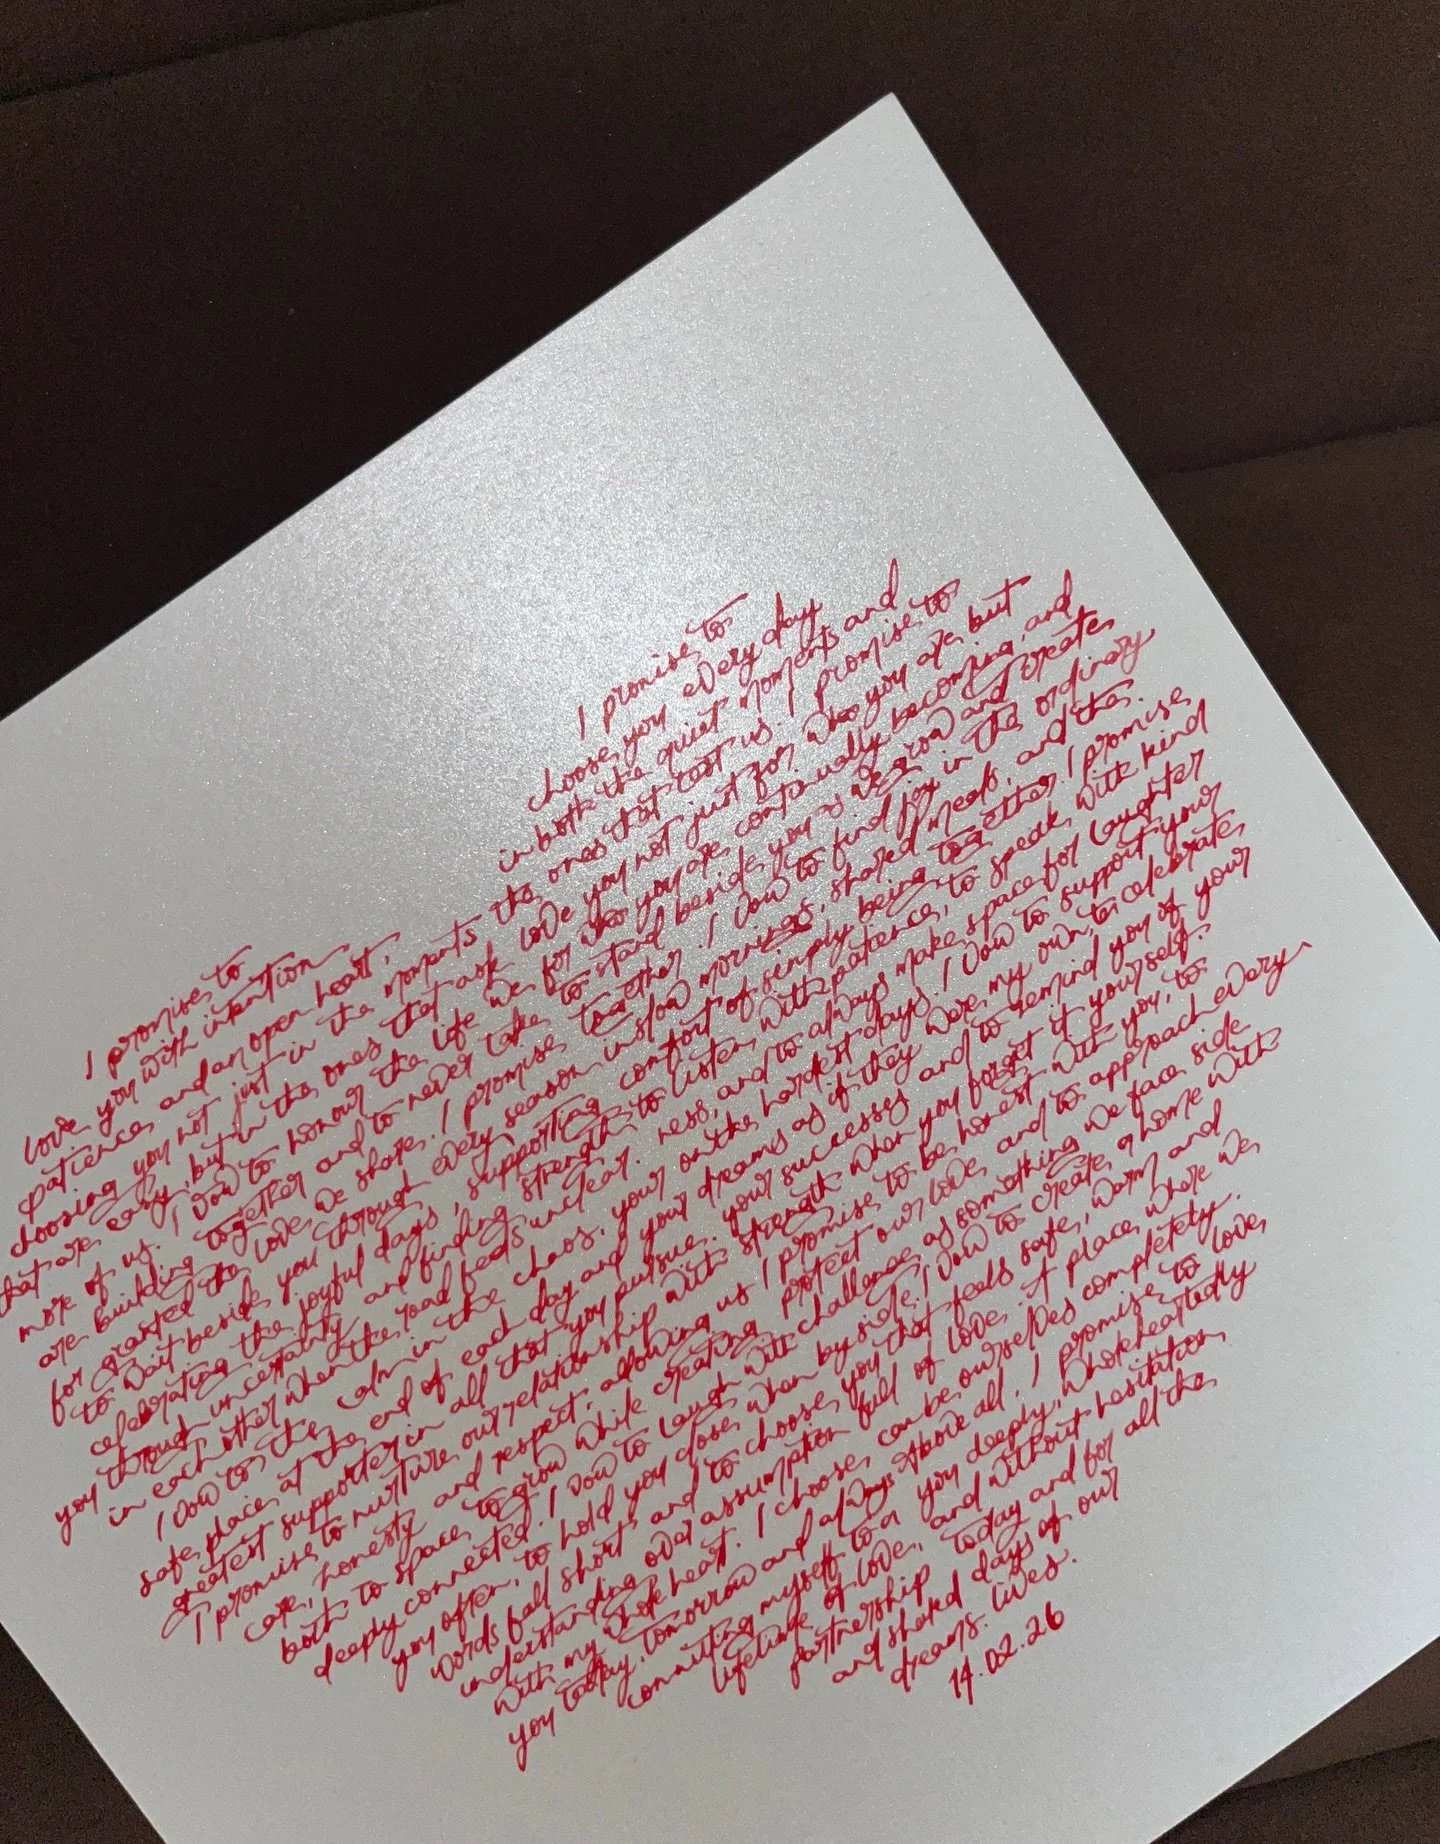 I promise to
love you with intention
patience and an open heart,
choosing you not just in the moments
that are easy, but in the ones that ask
more of us. I vow to honour the life we
are building together and to never take
for granted the love we share. I promise
to wait beside you through every season
celebrating the joyful days, supporting
you through uncertainty and finding strength
in each other when the road feels unclear.
I vow to the calm in the chaos, your
safe place at the end of each day and your
greatest supporter in all that you pursue.
I promise to nurture our relationship with
care, honesty and respect, allowing us
both to space to grow while creating
deeply connected. I vow to laugh with
you often, to hold you close when
words fall short, and to choose
understanding over assumption
with my whole heart. I choose
you today, tomorrow and always
committing myself to a
lifetime of love,
partnership
and shared
dreams.
I promise to
choose you every day
in both the quiet moments and
the ones that test us. I promise to
love you not just for who you are but
for who you are continually becoming, and
to stand beside you as we grow and create
together. I vow to find joy in the ordinary
in slow mornings, shared meals, and the
comfort of simply being together. I promise
to listen with patience, to speak with kind
ness, and to always make space for laughter
on the hardest days. I vow to support your
dreams as if they were my own, to celebrate
your successes and to remind you of your
strength when you forget it yourself.
I promise to be honest with you, to
protect our love and to approach every
challenge as something we face side
by side. I vow to create a home with
you that feels safe, warm and
full of love. A place where we
can be ourselves completely.
Above all, I promise to love
you deeply, wholeheartedly
and without hesitation
today and for all the
days of our
lives.
14.02.26